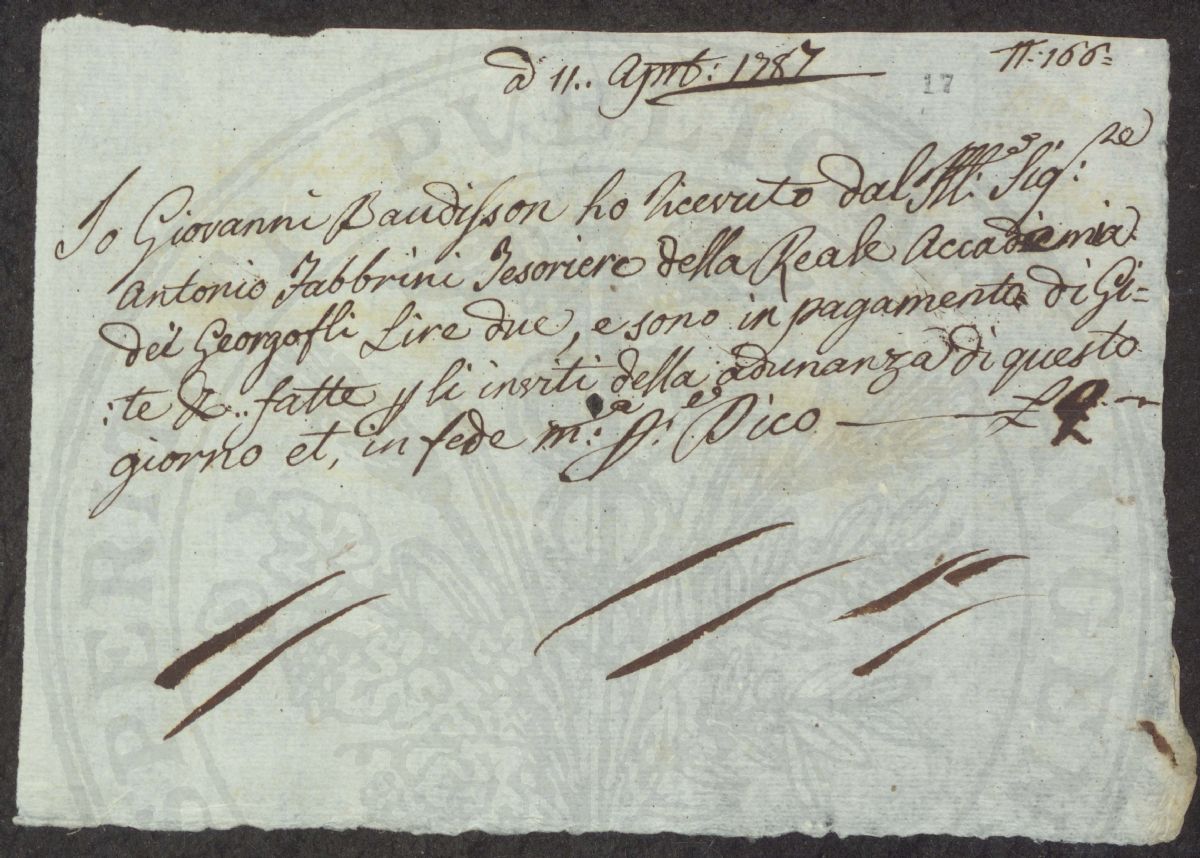 a dì 11.. Aprile: 1787
N: 166=
17
Io Giovanni Baudisson ho ricevuto dal Ill: Sig:re
Antonio Fabbrini Tesoriere della Reale Accademia
dei Georgofli Lire due, e sono in pagamento di Gi=
:te &.. fatte p li inviti della adunanza di questo
giorno et, in fede m:a pp:a Dico — £ 2.—
PUBLIC